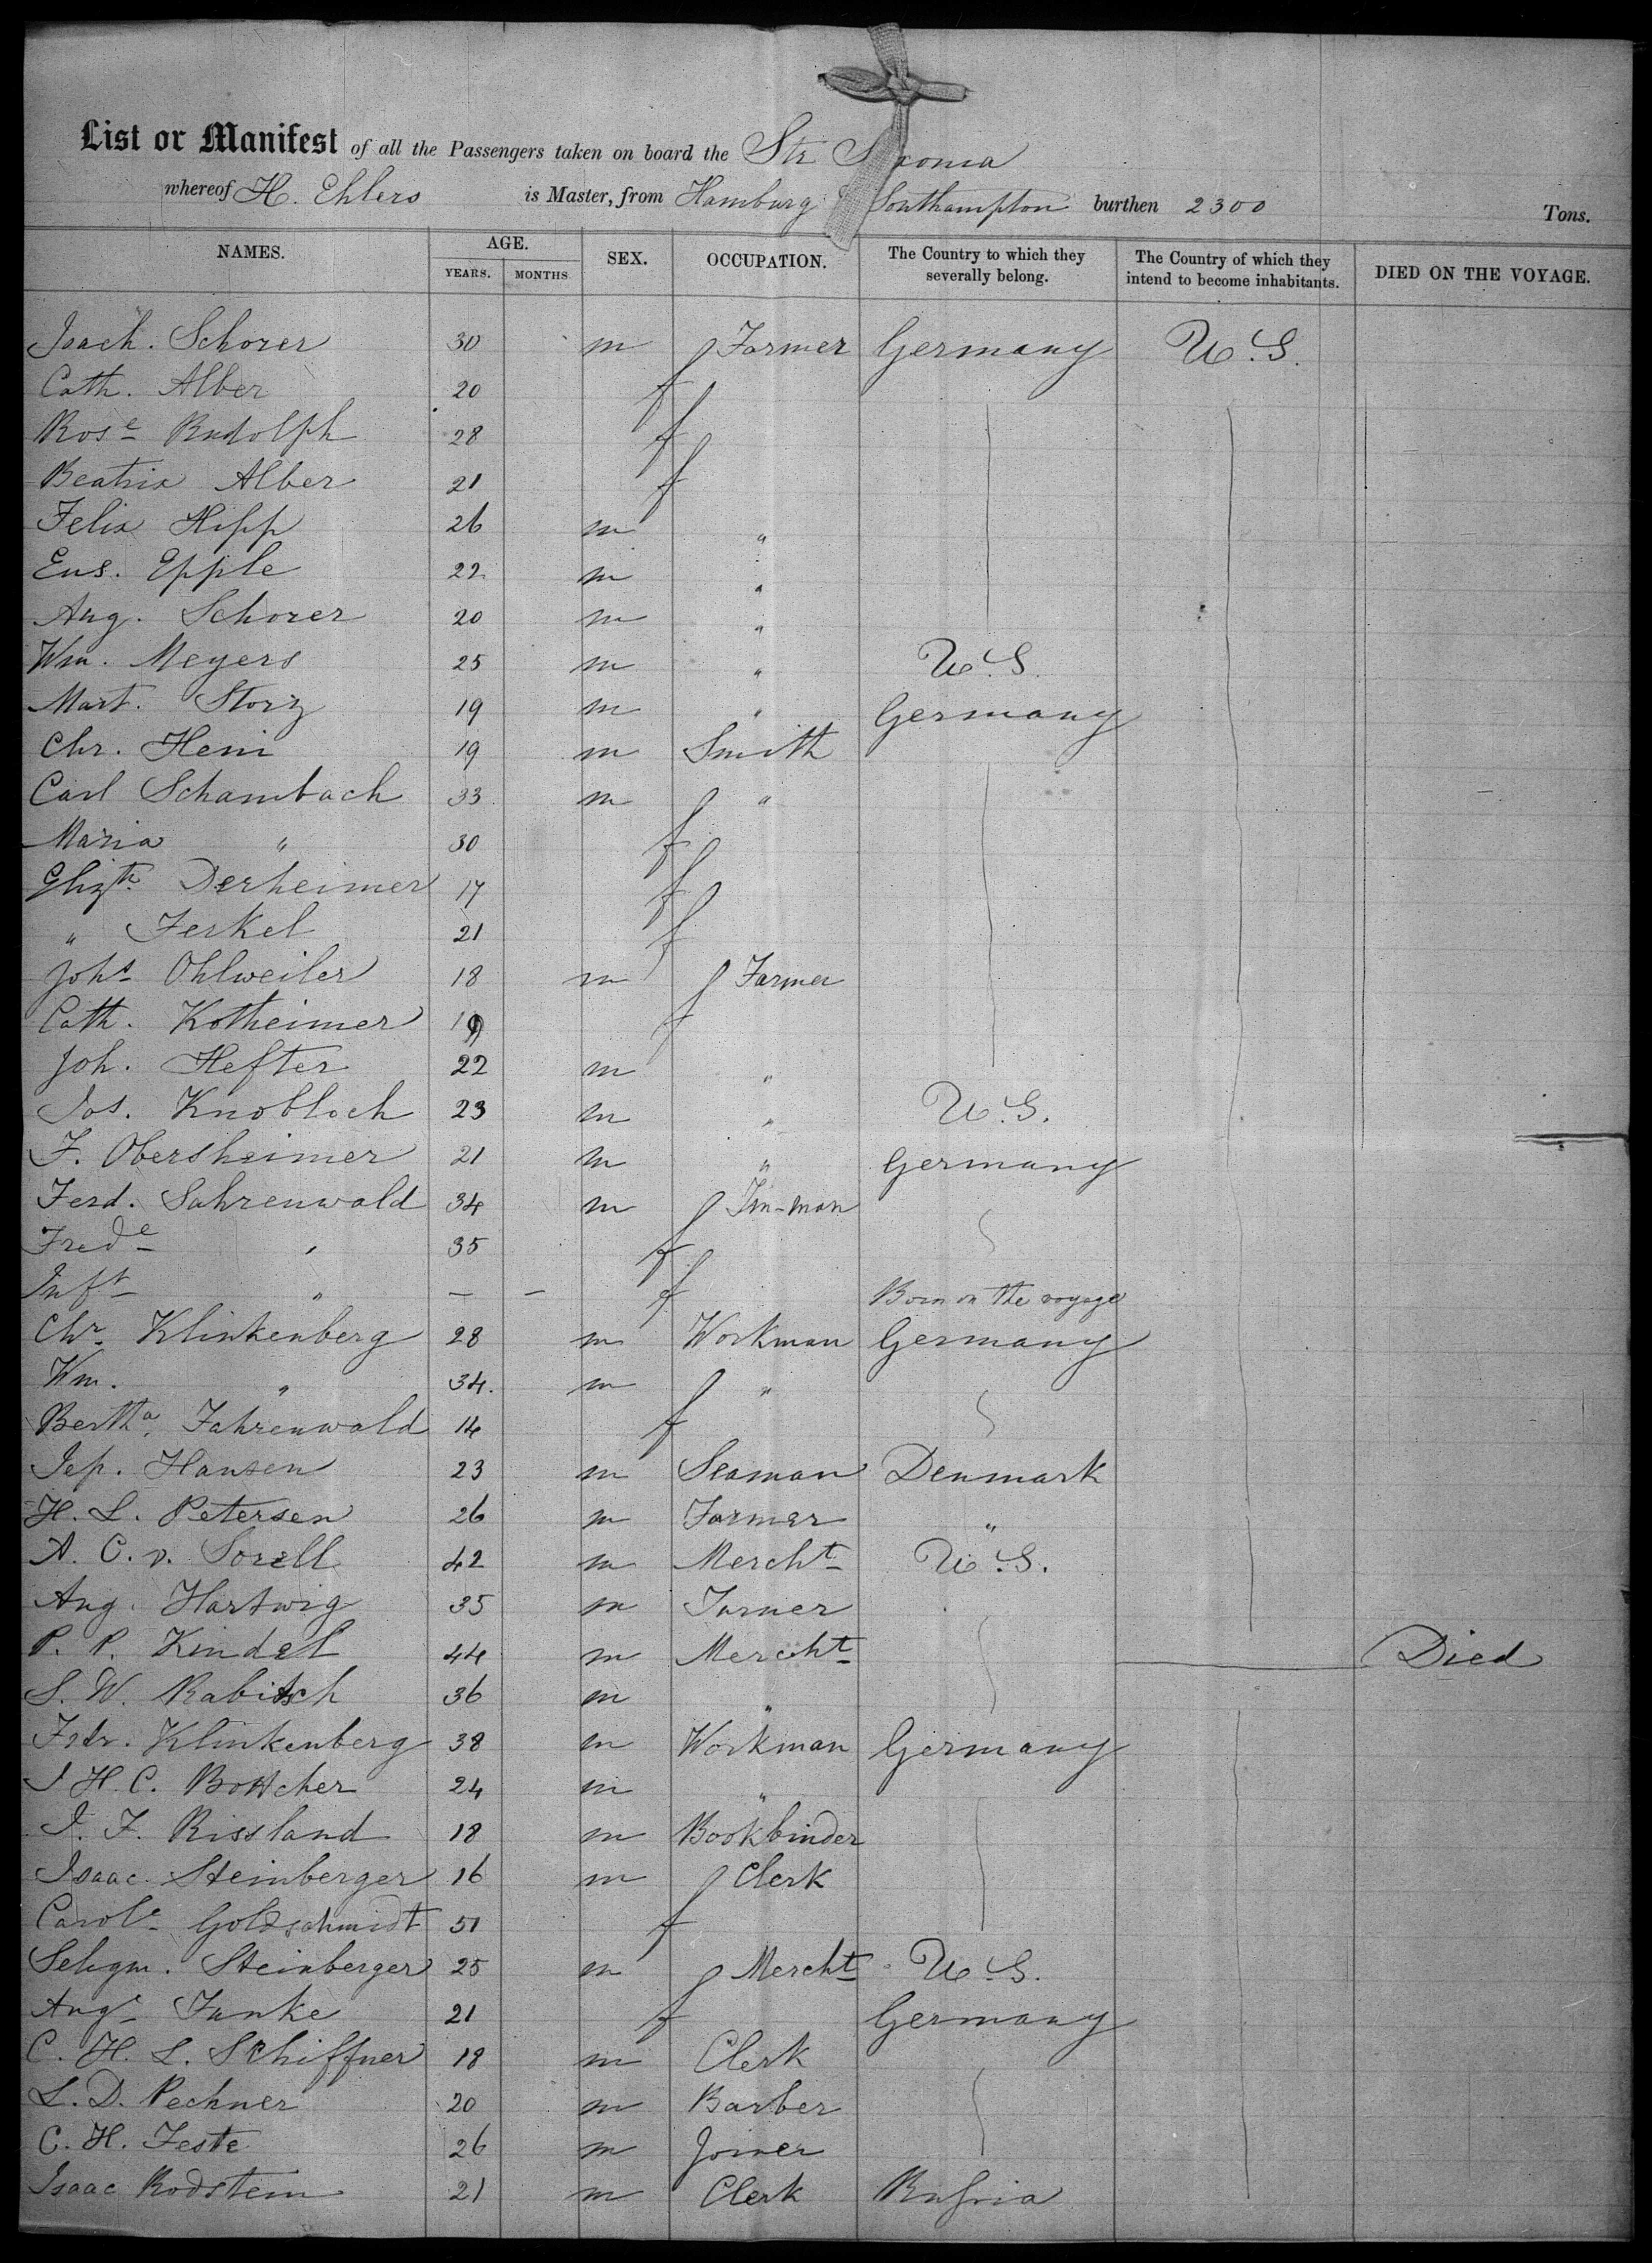 List or Manifest of all the Passengers taken on board the Str Saxonia
whereof H. Ehlers is Master, from Hamburg Southampton burthen 2300 Tons.
NAMES. AGE. YEARS. MONTHS. SEX. OCCUPATION. The Country to which they severally belong. The Country of which they intend to become inhabitants. DIED ON THE VOYAGE.
Joach. Schorer 30 m Farmer Germany U.S.
Cath. Alber 20 f
Rose Rudolph 28 f
Beatrix Alber 21 f
Felix Hipp 26 m "
Eus. Epple 22 m "
Aug. Schorer 20 m "
Wm. Meyers 25 m " U.S.
Mart. Storz 19 m " Germany
Chr. Heni 19 m Smith
Carl Schambach 33 m "
Maria " 30 f
Elizth. Derheimer 17 f
" Ferkel 21 f
Johs Ohlweiler 18 m Farmer
Cath. Kotheimer 19 f
Joh. Hefter 22 m "
Jos. Knobloch 23 m " U.S.
F. Obersheimer 21 m " Germany
Ferd. Fahrenwald 34 m Tin-man
Frede " 35 f
Inft " — — f Born on the voyage
Chr. Klinkenberg 28 m Workman Germany
Wm. " 34. m "
Bertha. Fahrenwald 14 f
Jep. Hansen 23 m Seaman Denmark
H. L. Petersen 26 m Farmer "
A. C. v. Sorell 42 m Mercht U.S.
Aug. Hartwig 35 m Turner
P. P. Kindel 44 m Mercht Died
S. W. Rabitsch 36 m "
Frdr. Klinkenberg 38 m Workman Germany
J H. C. Bottcher 24 m "
J. F. Rissland 18 m Bookbinder
Isaac Steinberger 16 m Clerk
Carole Goldschmidt 51 f
Seligm. Steinberger 25 m Mercht U.S.
Auge Funke 21 f Germany
C. H. L. Schiffner 18 m Clerk
L. D. Pechner 20 m Barber
C. H. Feste 26 m Joiner
Isaac Rodstein 21 m Clerk Russia